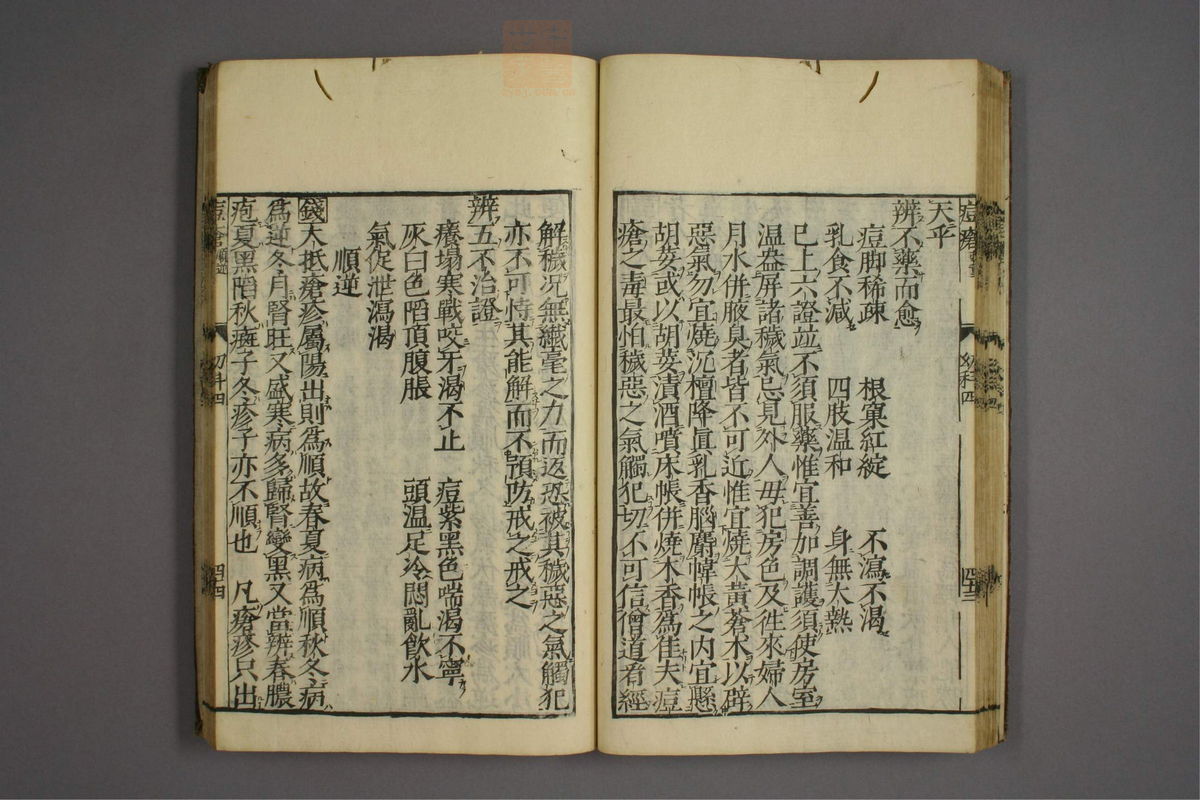 痘瘡
幼科四
天乎
辨不藥而愈
痘脚稀疎 根窠紅綻 不瀉不渴
乳食不減 四肢温和 身無大熱
已上六證並不須服藥惟宜善加調護須使房室
温盎屏諸穢氣忌見外人毋犯房色及徃來婦人
月水併腋臭者皆不可近惟宜燒大黃蒼术以辟
惡氣勿宜燒沉檀降眞乳香腦麝幃帳之内宜懸
胡荽或以胡荽漬酒噴床帳併燒木香爲佳夫痘
瘡之毒最怕穢惡之氣觸犯切不可信僧道看經
解穢况無纎毫之力而返恐被其穢惡之氣觸犯
亦不可恃其能解而不預防戒之戒之
辨五不治證
癢塌寒戰咬牙渴不止 痘紫黑色喘渴不寧
灰白色陷頂腹脹 頭温足冷悶亂飲水
氣促泄瀉渴
順逆
錢大抵瘡疹屬陽出則爲順故春夏病爲順秋冬病
爲逆冬月腎旺又盛寒病多歸腎變黑又當辨春膿
疱夏黑陷秋斑子冬疹子亦不順也 凡瘡疹只出
痘瘡順逆
幼科四
四四